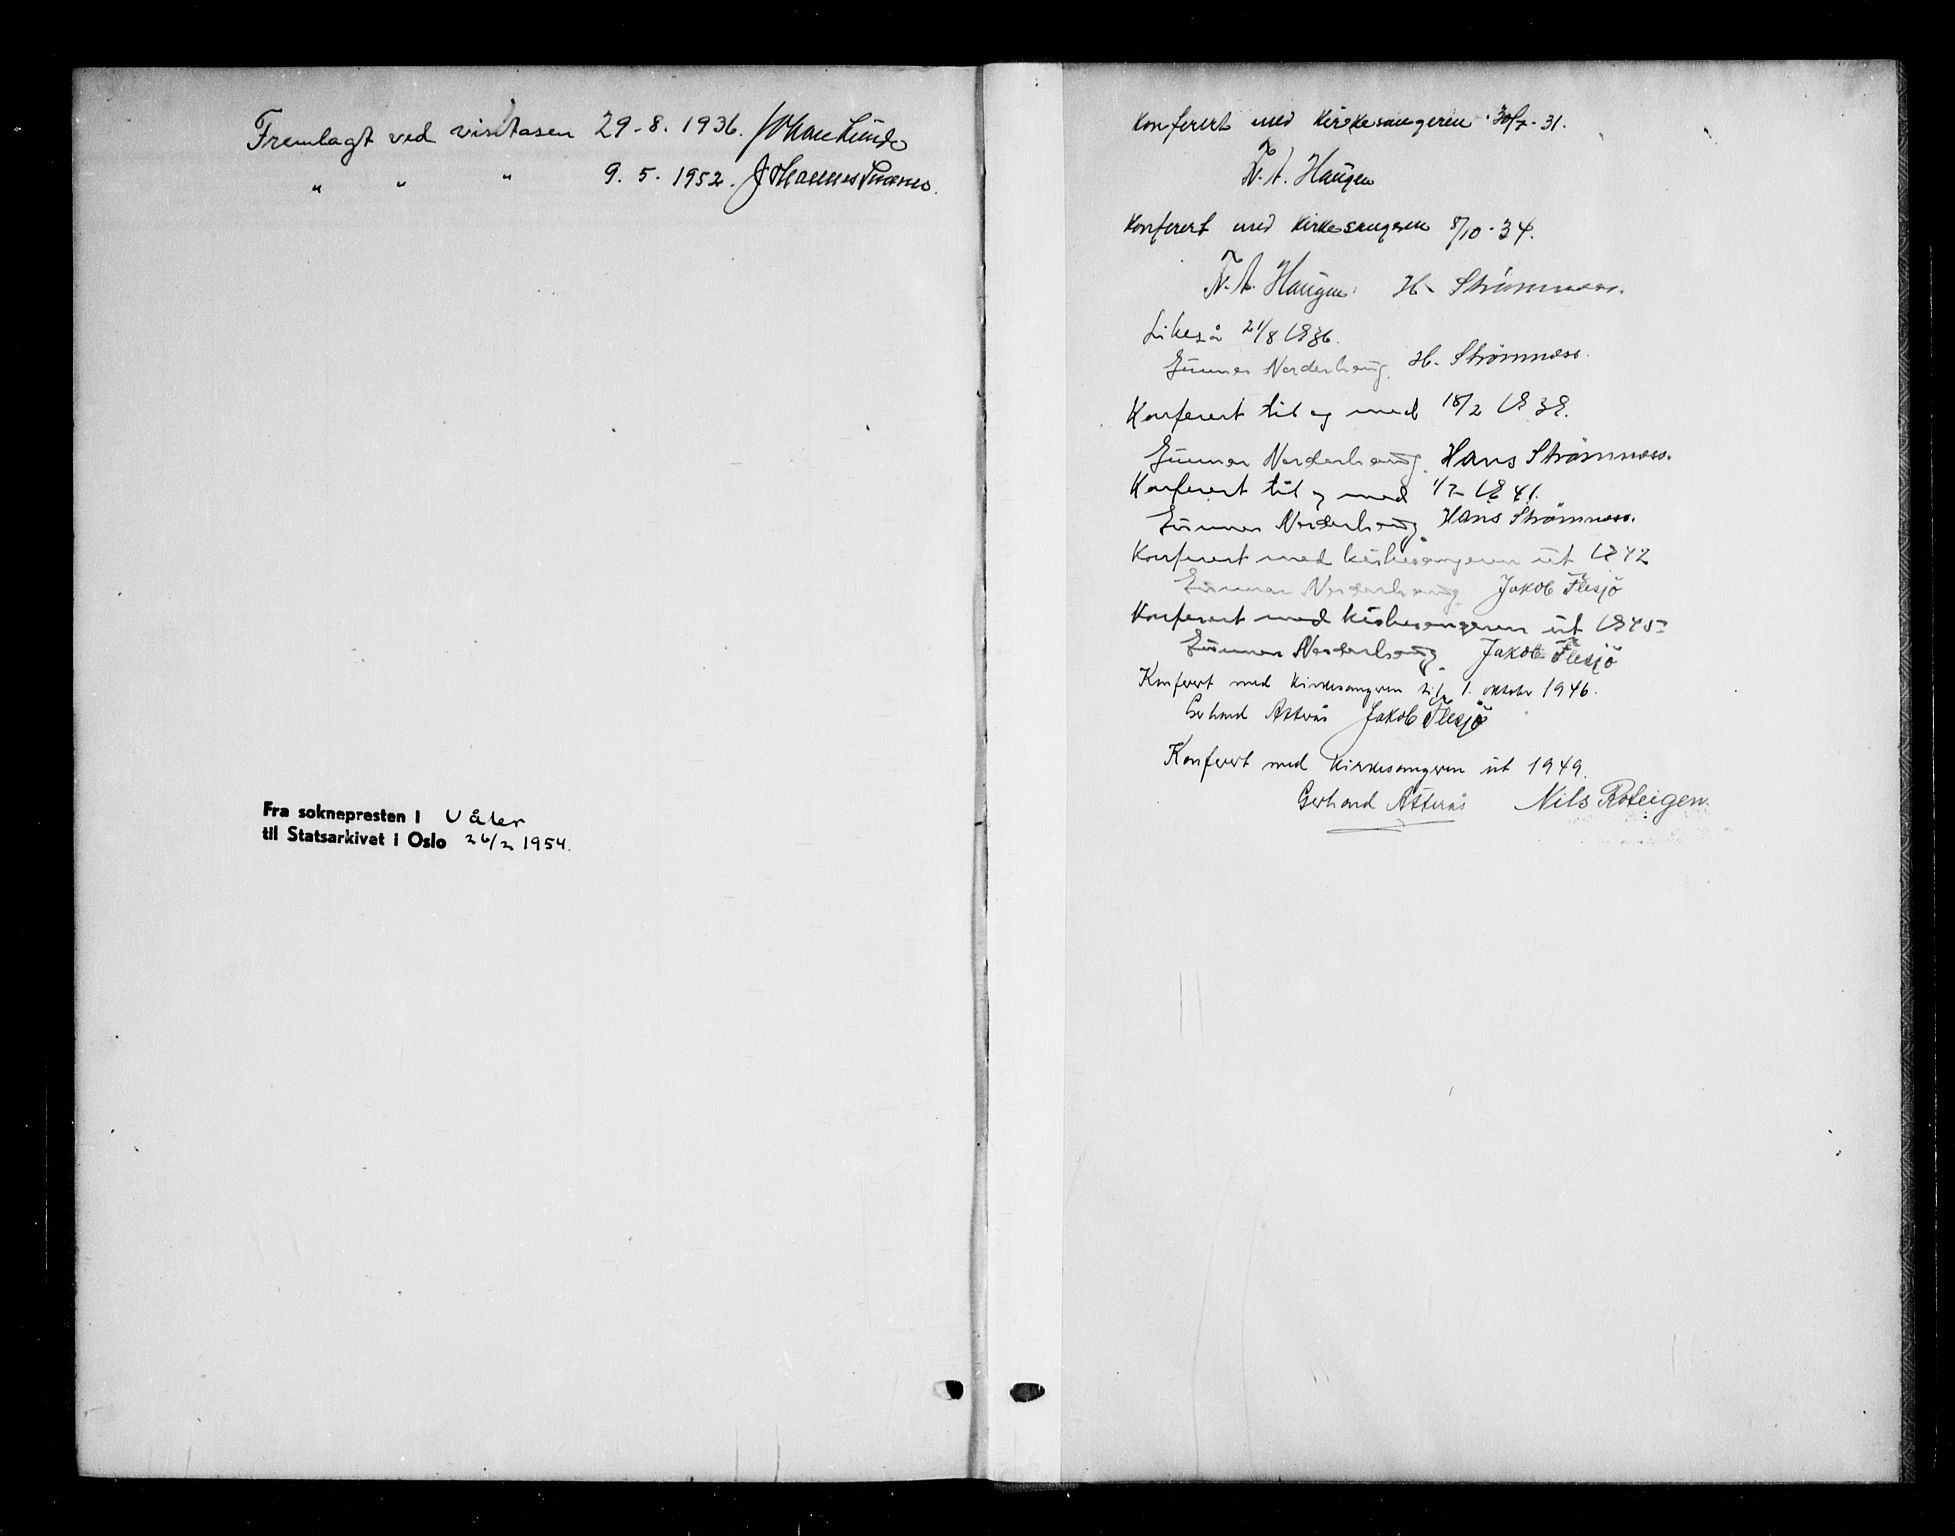 Fremlagt ved visitasen 29-8. 1936. Johan Lunde
" " " 9. 5. 1952. Johannes Smemo.
Fra soknepresten i Våler
til Statsarkivet i Oslo 26/2 1954.
Konferert med kirkesangeren 30/7-31.
N. A. Haugen
Konferert med kirkesangeren 8/10-34.
N. A. Haugen H. Strømnæss.
Likeså 21/8 1936.
Gunnar Norderhaug. H. Strömnæss.
Konferert til og med 18/2 1939.
Gunnar Norderhaug. Hans Strömnæss.
Konferert til og med 1/7 1941.
Gunnar Norderhaug. Hans Strömnæss.
Konferert med kirkesangeren ut 1942
Gunnar Norderhaug. Jakob Flesjö
Konferert med kirkesangeren ut 1945
Gunnar Norderhaug. Jakob Flesjö
Konferert med kirkesangeren til 1. oktober 1946.
Gerhard Atterås Jakob Flesjö
Konferert med kirkesangeren ut 1949.
Gerhard Atterås Nils Roteigen.